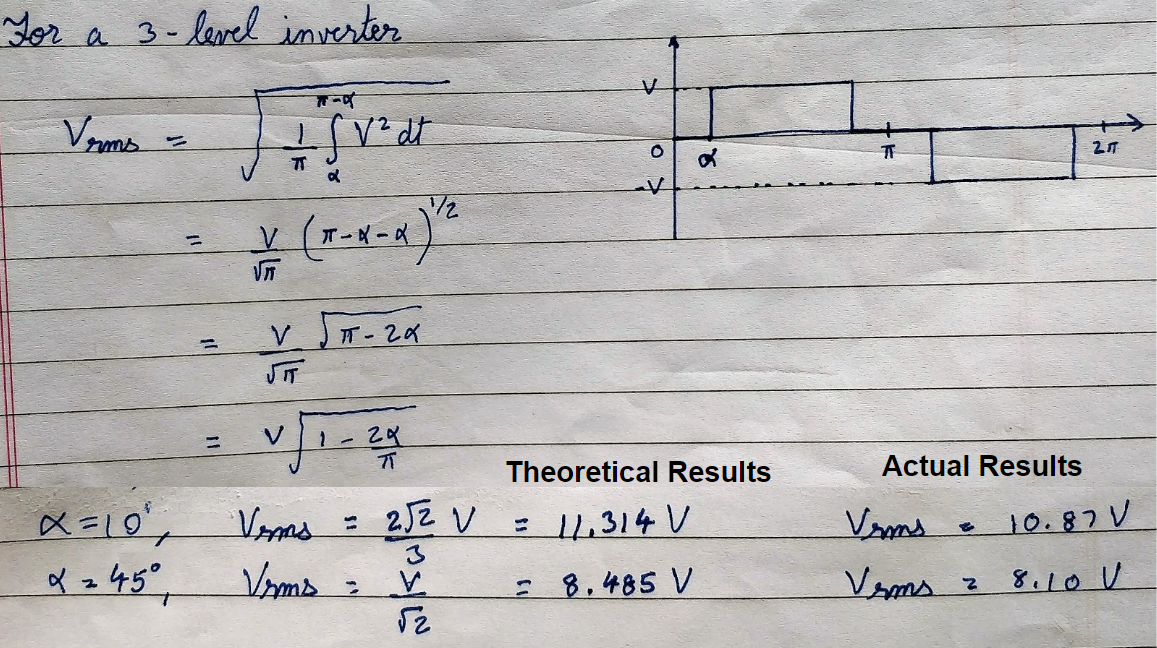 For a 3-level inverter
Vrms = √(1/π ∫_α^(π-α) V² dt)
V
0 α π 2π
-V
= V/√π (π-α-α)^1/2
= V/√π √(π-2α)
= V√(1-2α/π)
Theoretical Results Actual Results
α=10°, Vrms = 2√2/3 V = 11.314 V Vrms = 10.87 V
α=45°, Vrms = V/√2 = 8.485 V Vrms = 8.10 V